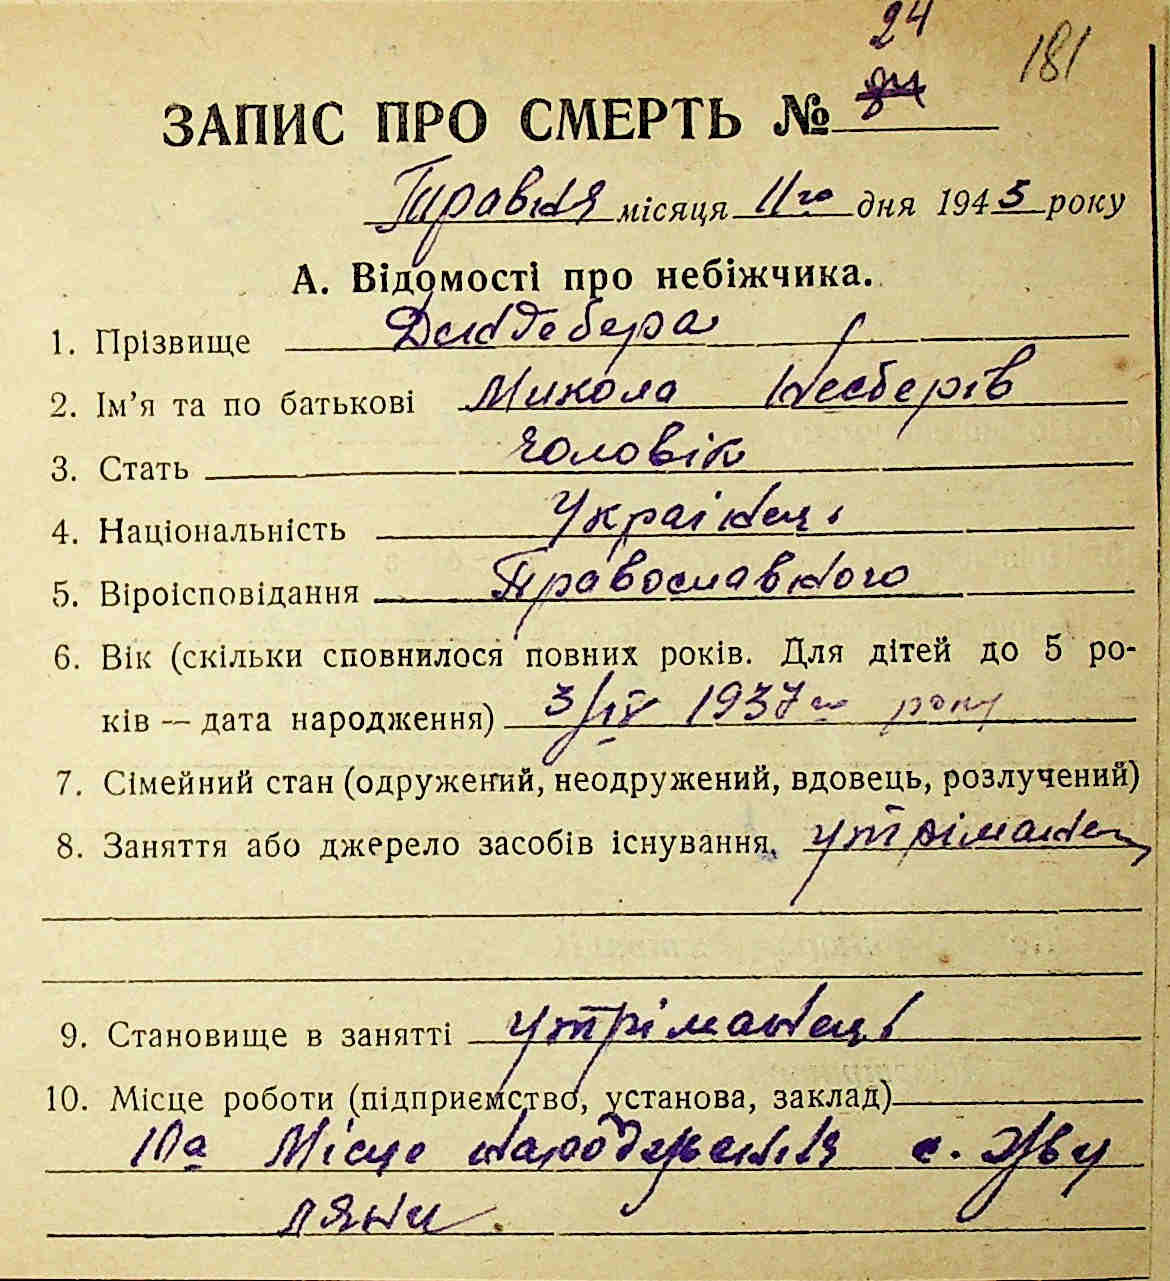 24
181
ЗАПИС ПРО СМЕРТЬ №
Травня місяця 11го дня 1943 року
А. Відомості про небіжчика.
1. Прізвище
2. Ім’я та по батькові Микола
3. Стать Чоловік
4. Національність Українець
5. Віроісповідання Православного
6. Вік (скільки сповнилося повних років. Для дітей до 5 ро-
ків — дата народження) 3/IV 1937го року
7. Сімейний стан (одружений, неодружений, вдовець, розлучений)
8. Заняття або джерело засобів існування. утріманец
9. Становище в занятті утріманець
10. Місце роботи (підприємство, установа, заклад)
10а Місце народження с. Жву
ляни.